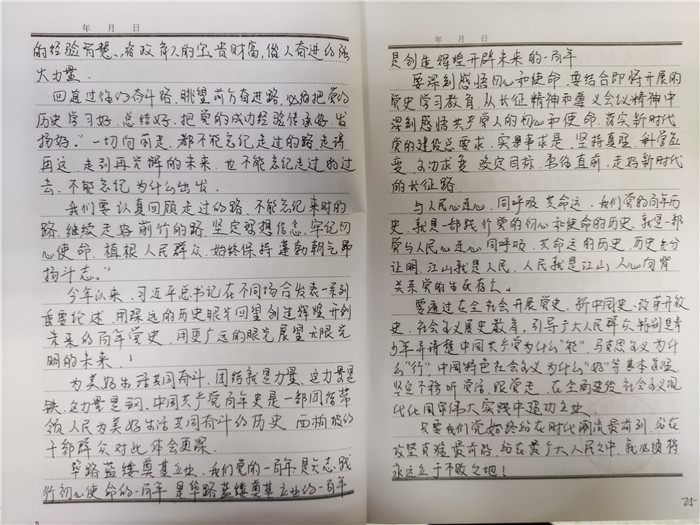 年 月 日
的经验智慧、资政育人的宝贵财富,催人奋进的强
大力量.
回首过往的奋斗路,眺望前方奋进路,必须把党的
历史学习好、总结好,把党的成功经验传承好、发
扬好。"一切向前走,都不能忘记走过的路,走得
再远、走到再光辉的未来,也不能忘记走过的过
去,不能忘记为什么出发.
我们要认真回顾走过的路,不能忘记来时的
路,继续走好前行的路,坚定理想信念,牢记初
心使命,植根人民群众,始终保持蓬勃朝气昂
扬斗志。"
今年以来,习近平总书记在不同场合发表一系列
重要论述,用深远的历史眼光回望创造辉煌开创
未来的百年党史,用更广远的眼光展望无限光
明的未来.
为美好生活共同奋斗,团结就是力量,这力量是
铁,这力量是钢,中国共产党百年史是一部团结带
领人民为美好生活共同奋斗的历史
干部群众对此体会更深.
筚路蓝缕奠基立业,我们党的一百年是矢志践
行初心使命的一百年 是筚路蓝缕奠基立业的一百年
年 月 日
是创造辉煌开辟未来的一百年
要深刻感悟初心和使命,要结合即将开展的
党史学习教育,从长征精神和遵义会议精神中
深刻感悟共产党人的初心和使命,落实新时代
党的建设总要求,实事求是,坚持真理,科学应
变,主动求变,咬定目标,勇往直前,走好新时代
的长征路
与人民心连心、同呼吸、共命运,我们党的百年历
史,就是一部践行党的初心和使命的历史,就是一部
党与人民心连心同呼吸、共命运的历史,历史充分
证明,江山就是人民,人民就是江山,人心向背
关系党的生死存亡。
要通过在全社会开展党史、新中国史、改革开放
史、社会主义发展史教育,引导广大人民群众特别是青
少年弄清楚中国共产党为什么"能",马克思主义为什
么"行",中国特色社会主义为什么"好"等基本道理
坚定不移听党话、跟党走,在全面建设社会主义现
代化国家伟大实践中建功立业.
只要我们党始终站在时代潮流最前列、站在
攻坚克难最前沿、站在最广大人民之中,就必将
永远立于不败之地!